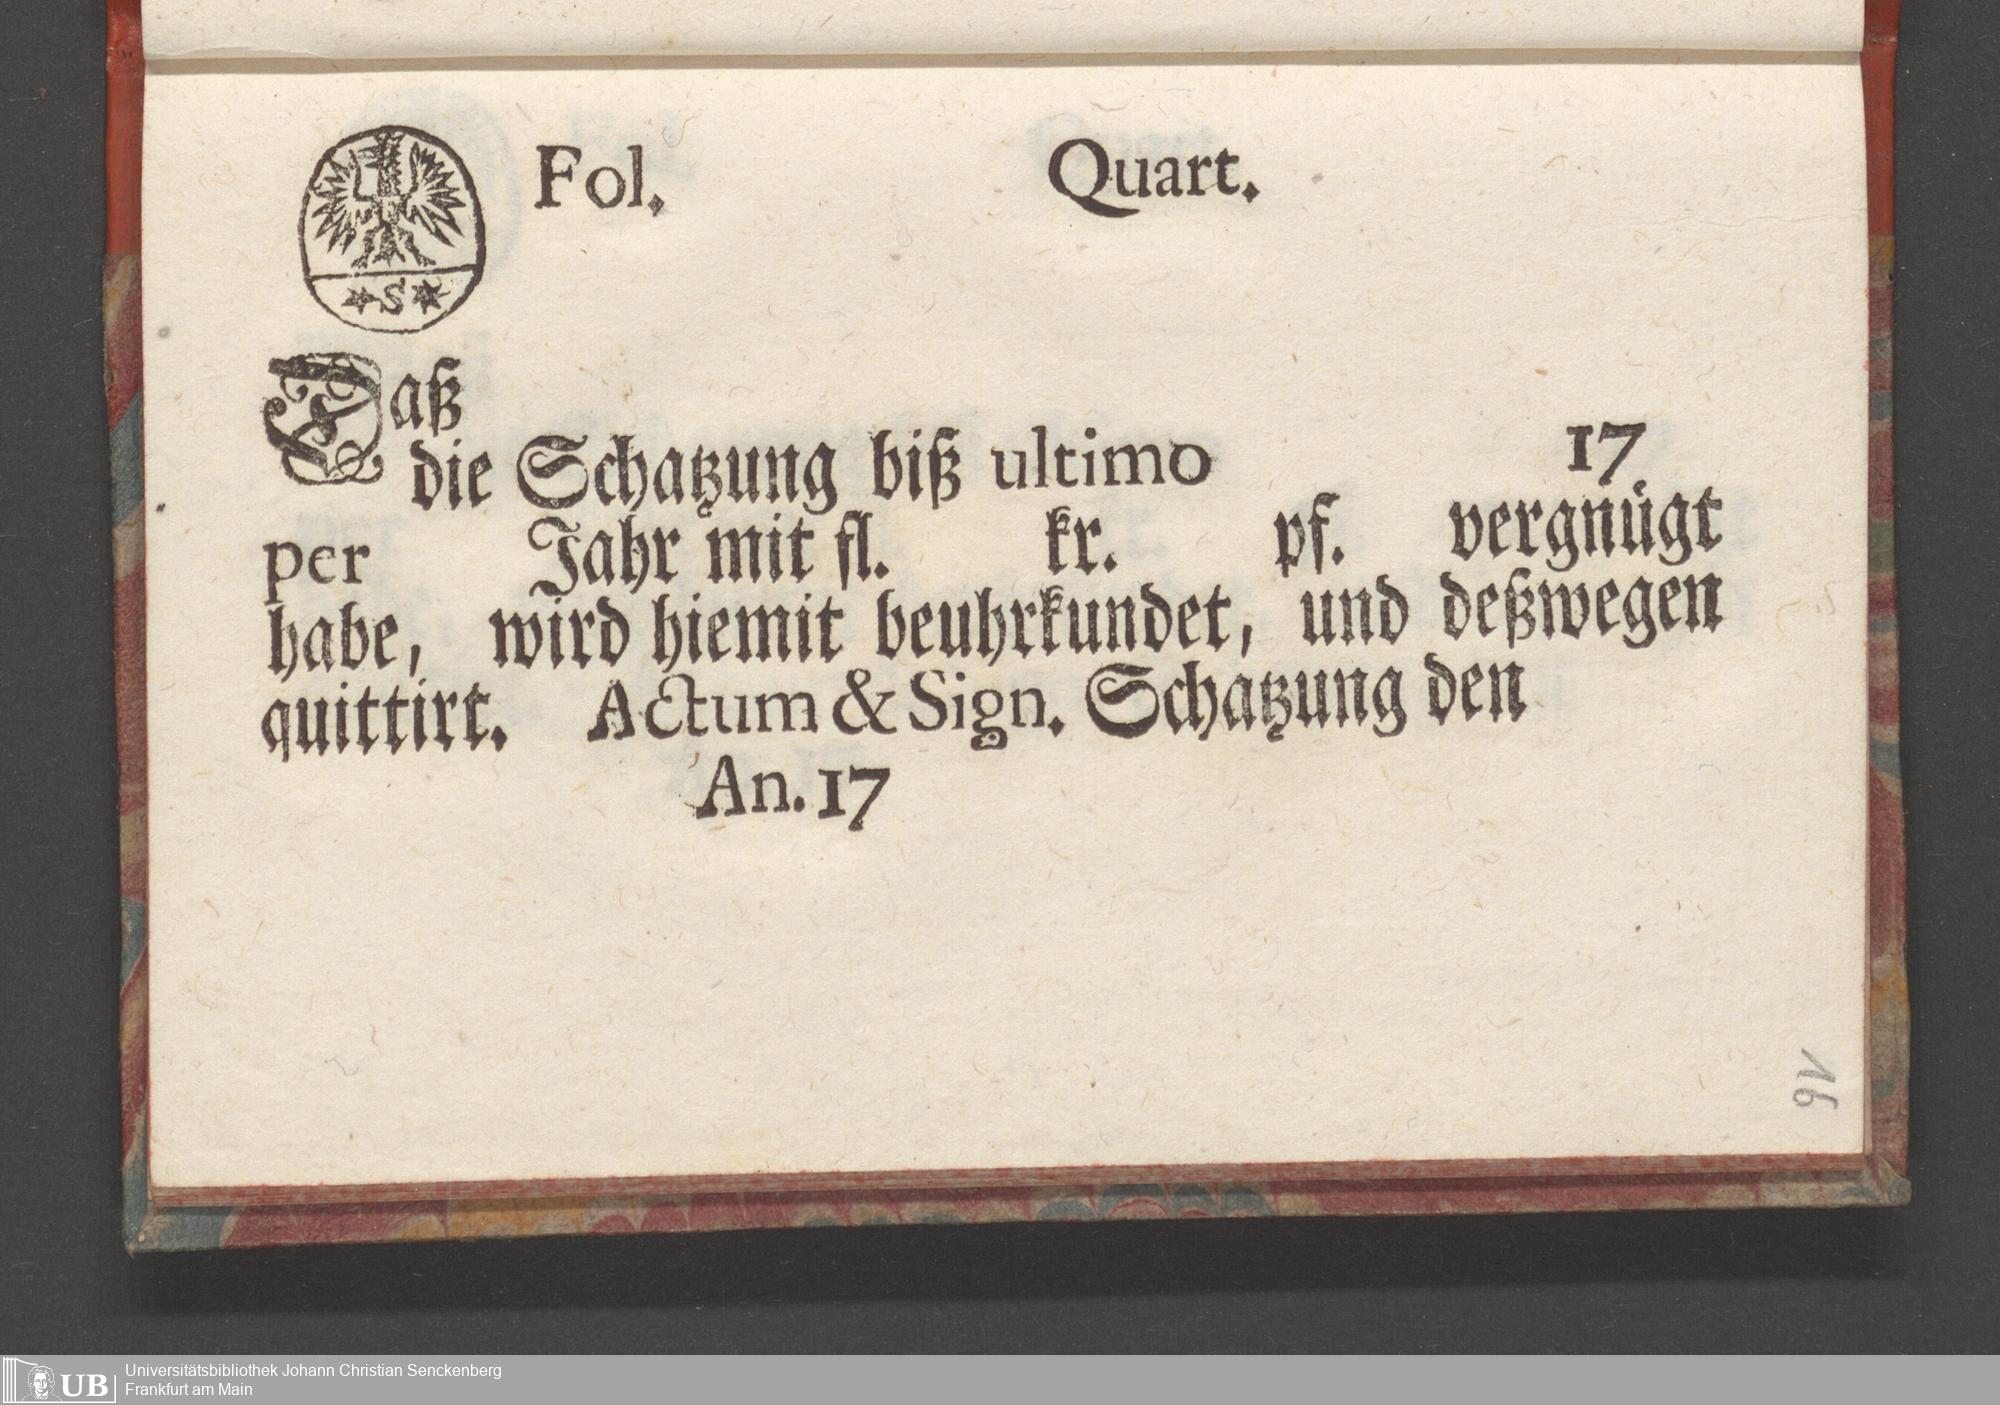 Fol. Quart.
*S*
Daß
die Schatzung biß ultimo 17
per Jahr mit fl. kr. pf. vergnügt
habe, wird hiemit beuhrkundet, und deßwegen
quittirt. Actum & Sign. Schatzung den
An. 17
16
UB
Universitätsbibliothek Johann Christian Senckenberg
Frankfurt am Main